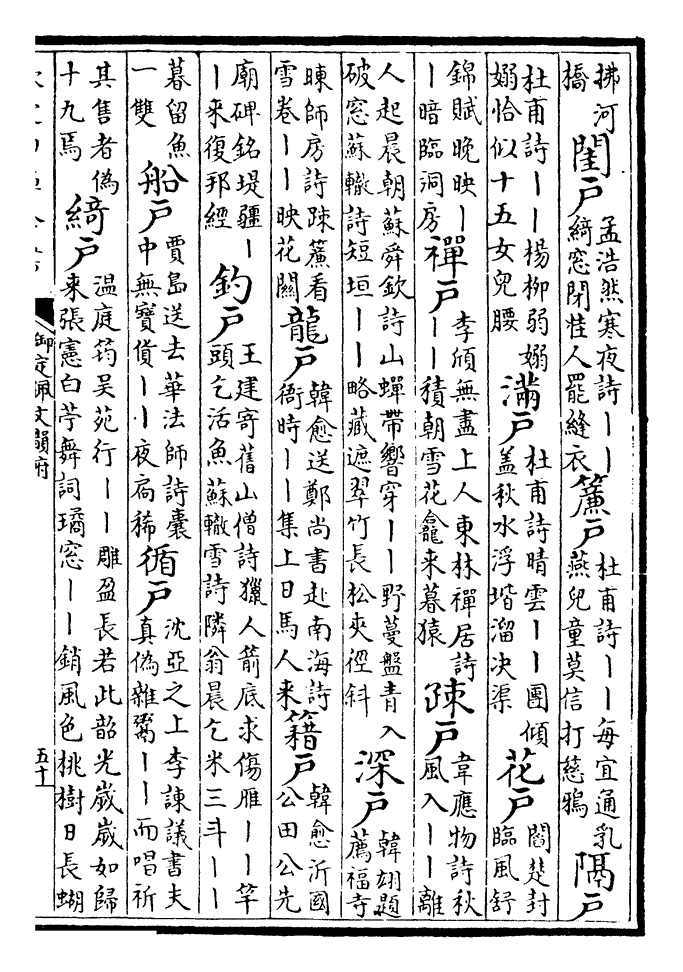 拂河橋 閨戶 孟浩然寒夜詩丨丨綺窓閉桂人罷縫衣 簾戶 杜甫詩丨丨每宜通乳燕兒童莫信打慈鴉 隔戶
杜甫詩丨丨楊柳弱嫋嫋恰似十五女兒腰 滿戶 杜甫詩晴雲丨丨團傾盖秋水浮堦溜决渠 花戶 閻楚封臨風舒
錦賦晚映丨丨暗臨洞房 禪戶 李頎無盡上人東林禪居詩丨丨積朝雪花龕来暮猿 疎戶 韋應物詩秋風入丨丨離
人起晨朝蘇舜欽詩山蟬帶響穿丨丨野蔓盤青入破窓蘇轍詩短垣丨丨略藏遮翠竹長松夾徑斜 深戶 韓翃題薦福寺
暕師房詩踈簾看雪卷丨丨映花關 龍戶 韓愈送鄭尚書赴南海詩衙時丨丨集上日馬人来 籍戶 韓愈沂國公田公先
廟碑銘堤疆丨丨来復邦經 釣戶 王建寄舊山僧詩獵人箭底求傷雁丨丨竿頭乞活魚蘇轍雪詩隣翁晨乞米三斗丨丨
暮留魚一雙 船戶 賈島送去華法師詩囊中無寶貨丨丨夜扄稀 循戶 沈亞之上李諫議書夫真偽雜鬻丨丨而唱祈
其售者偽十九焉 綺戶 温庭筠吴苑行丨丨雕盈長若此韶光歲歲如歸来張憲白苧舞詞璚窓丨丨銷風色桃樹日長蝴
御定佩文韻府
五十